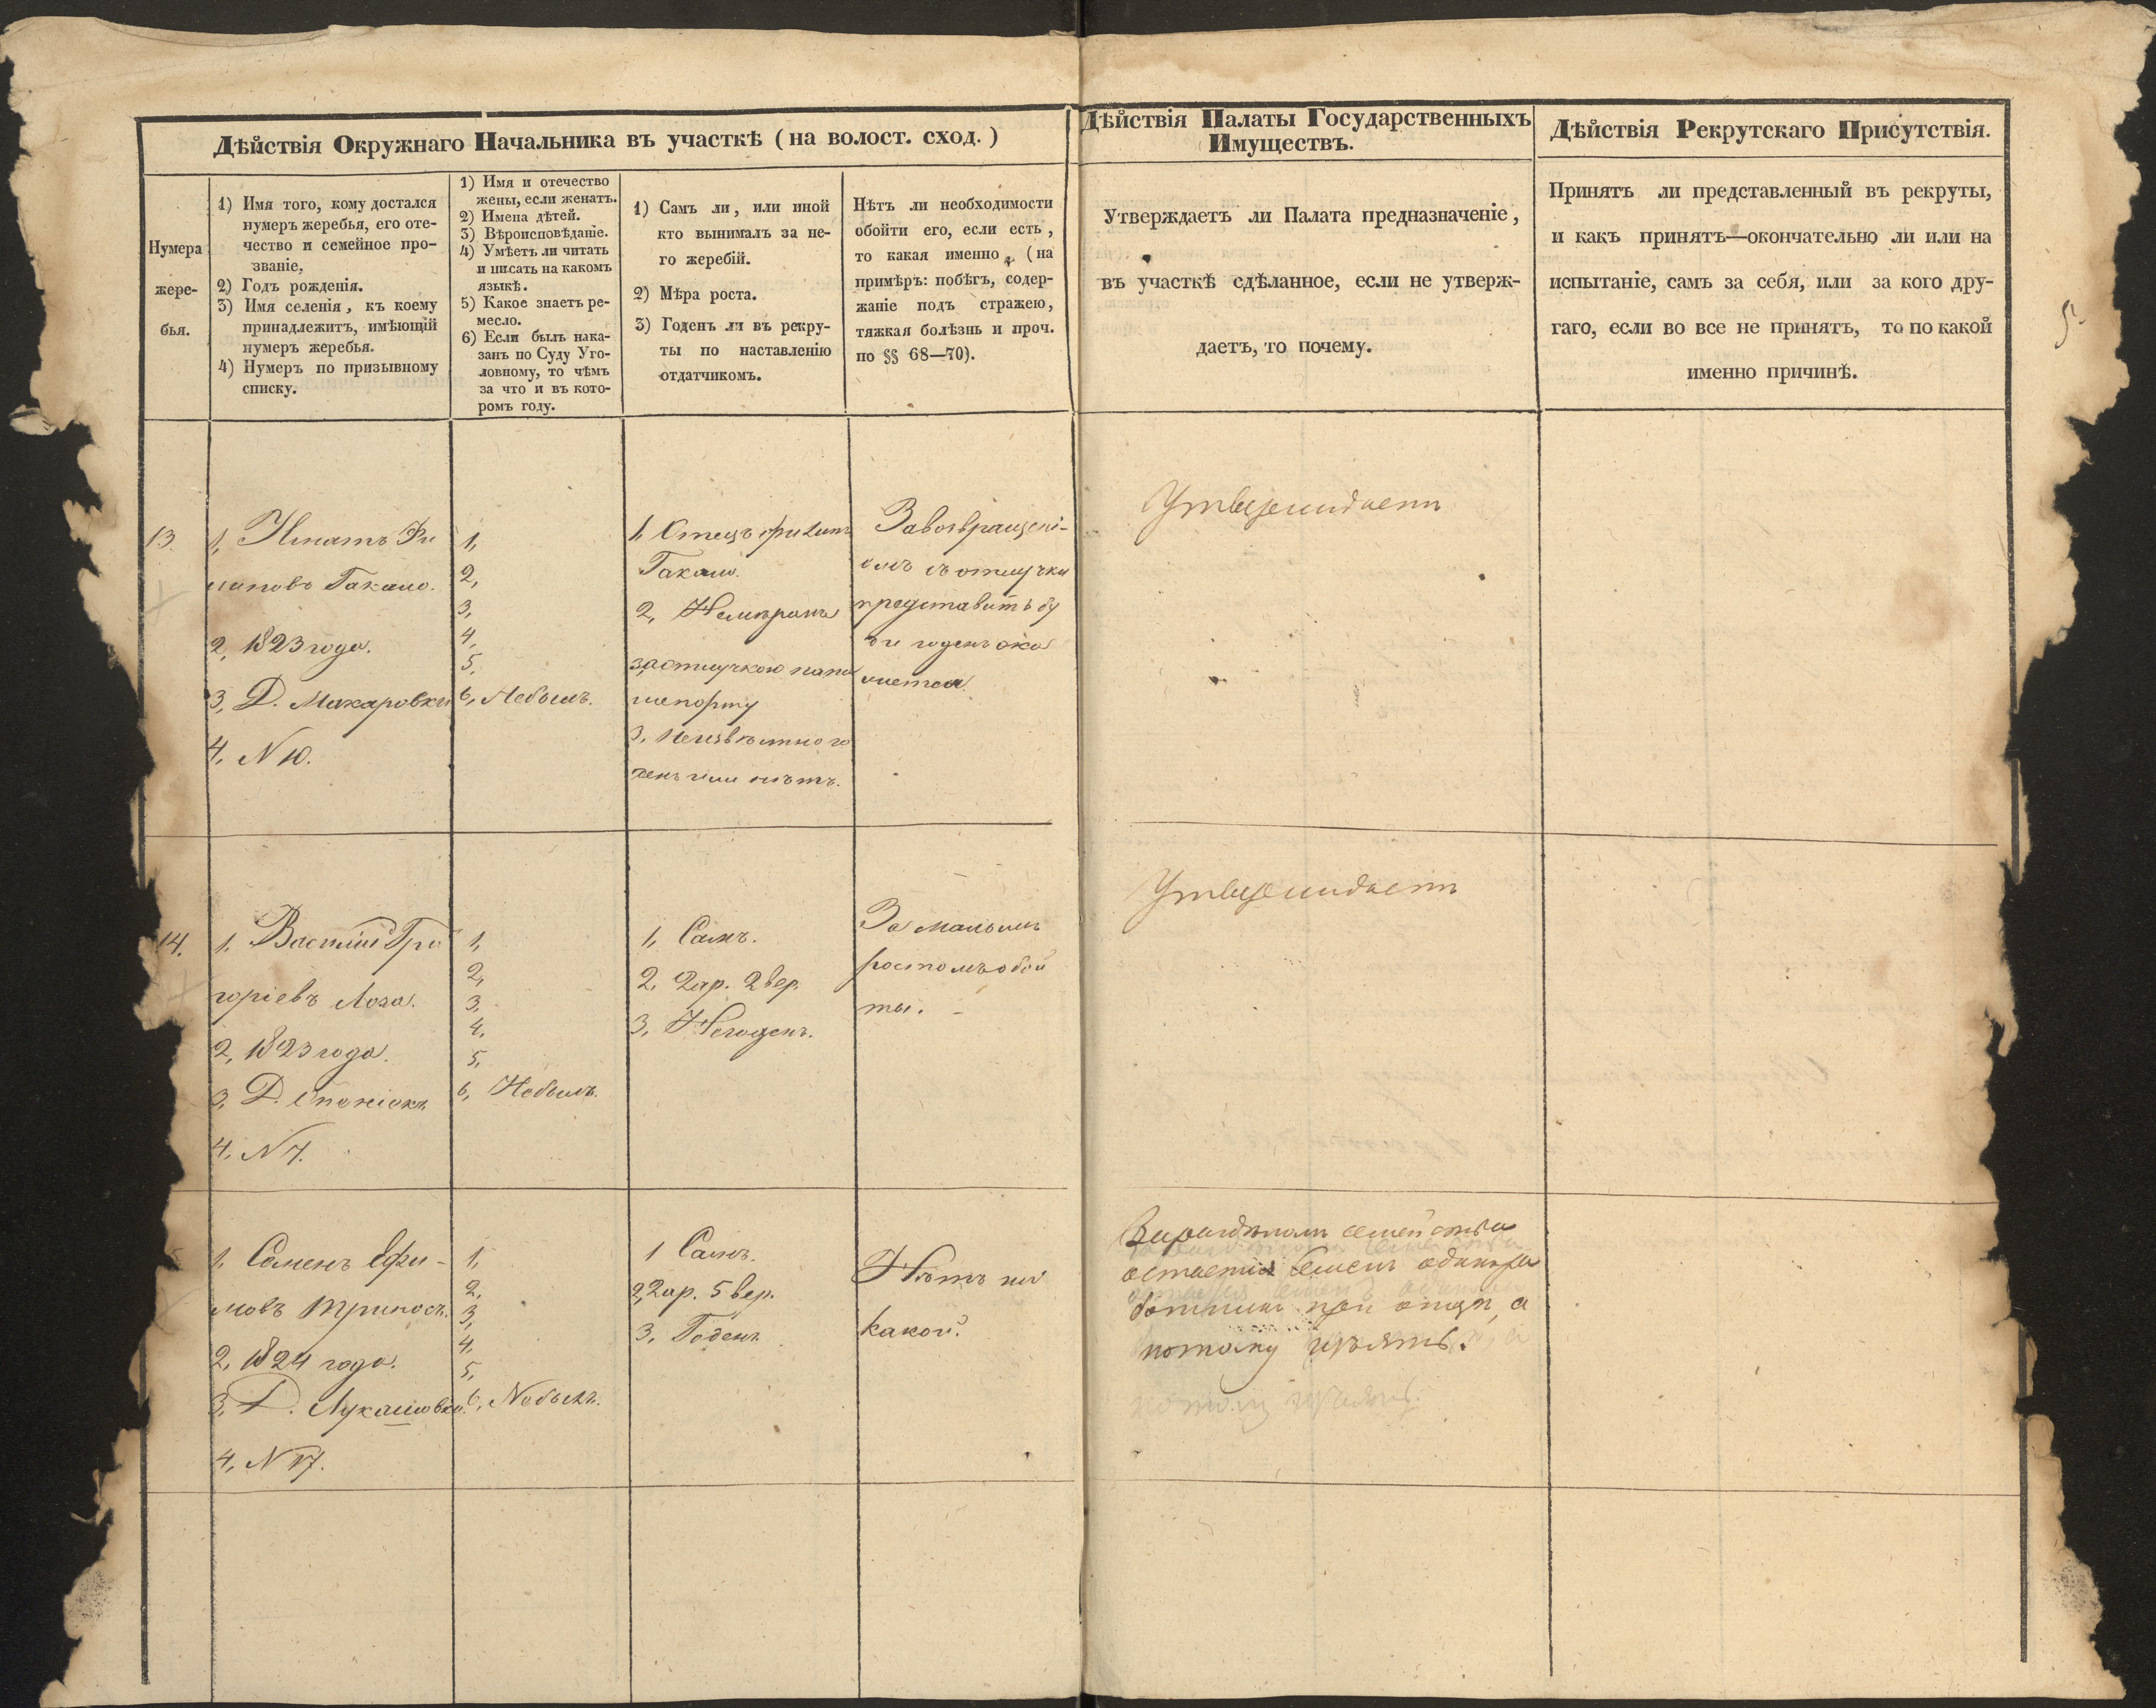 Дѣйствія Окружнаго Начальника въ участкѣ (на волост. сход.)
Дѣйствія Палаты Государственныхъ
Имуществъ.
Дѣйствія Рекрутскаго Присутствія.
Нумера
жере-
бья.
1) Имя того, кому достался
нумеръ жеребья, его оте-
чество и семейное про-
званіе,
2) Годъ рожденія.
3) Имя селенія, къ коему
принадлежитъ, имѣющій
нумеръ жеребья.
4) Нумеръ по призывному
списку.
1) Имя и отечество
жены, если женатъ.
2) Имена дѣтей.
3) Вѣроисповѣданіе.
4) Умѣетъ ли читать
и писать на какомъ
языкѣ.
5) Какое знаетъ ре-
месло.
6) Если былъ нака-
занъ по Суду Уго-
ловному, то чѣмъ
за что и въ кото-
ромъ году.
1) Самъ ли, или иной
кто вынималъ за не-
го жеребій.
2) Мѣра роста.
3) Годенъ ли въ рекру-
ты по наставленію
отдатчикомъ.
Нѣтъ ли необходимости
обойти его, если есть,
то какая именно, (на
примѣръ: побѣгъ, содер-
жаніе подъ стражею,
тяжкая болѣзнь и проч.
по §§ 68—70).
Утверждаетъ ли Палата предназначеніе,
въ участкѣ сдѣланное, если не утверж-
даетъ, то почему.
Принятъ ли представленный въ рекруты,
и какъ принятъ—окончательно ли или на
испытаніе, самъ за себя, или за кого дру-
гаго, если во все не принятъ, то по какой
именно причинѣ.
5
13.
1, Игнатъ Фи
липовъ Гакало.
2, 1823 года.
3, Д. Макаровки
4, N 10.
1,
2,
3,
4,
5,
6, Небылъ.
1, Отецъ Филипъ
Гакало.
2, Немѣрянъ
за отлучкою по па
шпорту
3, Неизвѣстно го
денъ или нѣтъ.
За возвращені-
емъ съ отлучки
представить бу
де годенъ ока
жется.
Утверждаетъ
14.
1, Василій Гри
горіевъ Лоза.
2, 1823 года.
3, Д.
4, N 7.
1,
2,
3,
4,
5,
6, Небылъ.
1, Самъ.
2, 2 ар. 2 вер.
3, Негоденъ.
За малымъ
ростомъ обой
ты.
Утверждаетъ
1, Семенъ Ефи-
мовъ Трипось.
2, 1824 года.
3, Д. Лукашовки.
4, N 17.
1,
2,
3,
4,
5,
6, Небылъ.
1 Самъ.
2, 2 ар. 5 вер.
3, Годенъ
Нѣтъ ни
какой.
За раздѣломъ семейства
остается Семенъ одинъ ра
ботникъ при отцѣ, а
потому изъять.